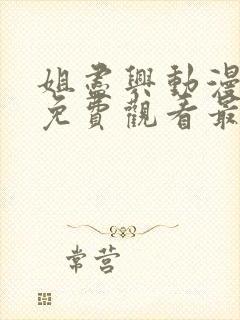 姐盡興動漫
免費觀看最
常营